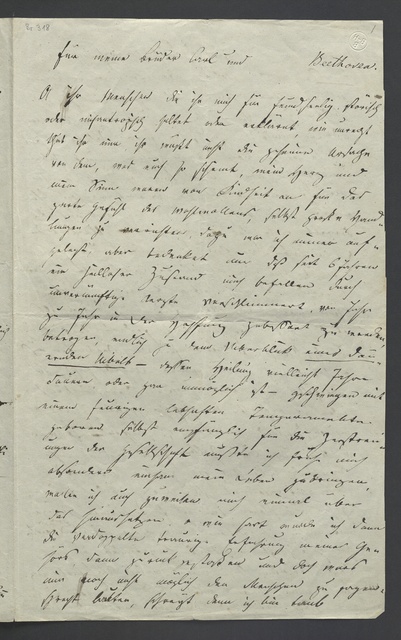 für meine brüder Carl und Beethoven.
O ihr Menschen die ihr mich für feindseelig störisch
oder misantropisch haltet oder erkläret, wie unrecht
thut ihr mir ihr wißt nicht die geheime ursache
von dem, was euch so scheinet, mein Herz und
mein Sinn waren von Kindheit an für das
zarte Gefühl des wohlwollens, selbst große Hand-
lungen zu verrichten dazu war ich immer auf-
gelegt aber bedenket nur daß seit 6 jahren
ein heilloser Zustand mich befallen durch
unvernünftige ärzte verschlimmert, von Jahr
zu Jahr in der Hoffnung gebessert zu werden,
betrogen, endlich zu dem überblick eines dau-
ernden Übels dessen Heilung vielleicht Jahre
dauern oder gar unmöglich ist gezwungen, mit
einem feurigen lebhaften Temperamente
gebohren selbst empfänglich für die Zerstreu-
ungen der Gesellschaft, mußte ich früh mich
absondern, einsam mein Leben zubringen,
wollte ich auch zuweilen mich einmal über
das hinaussetzen, o wie hart wurde ich dann
die verdoppelte traurige Erfahrung meines Ge-
hörs dann zurückgestoßen und doch wars
mir noch nicht möglich den Menschen zu sagen:
sprecht lauter, schreyt denn ich bin taub